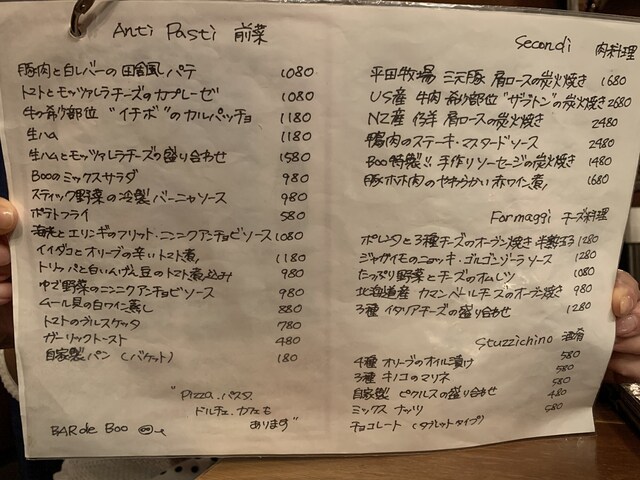 Anti Pasti 前菜
豚肉と白レバーの田舎風パテ 1080
トマトとモッツァレラチーズのカプレーゼ 1080
牛の希少部位"イチボ"のカルパッチョ 1180
生ハム 1180
生ハムとモッツァレラチーズの盛り合わせ 1580
Booのミックスサラダ 980
スティック野菜の冷製バーニャソース 980
ポテトフライ 580
海老とエリンギのフリット・ニンニクアンチョビソース 1080
イイダコとオリーブの辛いトマト煮 1180
トリッパと白いんげん豆のトマト煮込み 980
ゆで野菜のニンニクアンチョビソース 980
ムール貝の白ワイン蒸し 880
トマトのブルスケッタ 780
ガーリックトースト 480
自家製パン (バケット) 180
"Pizza.パスタ
ドルチェ.カフェも
あります"
BAR de Boo
Secondi 肉料理
平田牧場 三元豚 肩ロースの炭火焼き 1680
US産 牛肉 希少部位"ザブトン"の炭火焼き 2680
NZ産 仔羊 肩ロースの炭火焼き 2480
鴨肉のステーキ・マスタードソース 2480
Boo特製!! 手作りソーセージの炭火焼き 1480
豚ホホ肉のやわらかい赤ワイン煮 1680
Formaggi チーズ料理
ポレンタと3種チーズのオーブン焼き 半熟玉子 1280
ジャガイモのニョッキ・ゴルゴンゾーラソース 1280
たっぷり野菜とチーズのオムレツ 1080
北海道産 カマンベールチーズのオーブン焼き 980
3種 イタリアチーズの盛り合わせ 1280
Stuzzichino 酒肴
4種 オリーブのオイル漬け 580
3種 キノコのマリネ 580
自家製 ピクルスの盛り合わせ 580
ミックス ナッツ 480
チョコレート (タブレットタイプ) 580